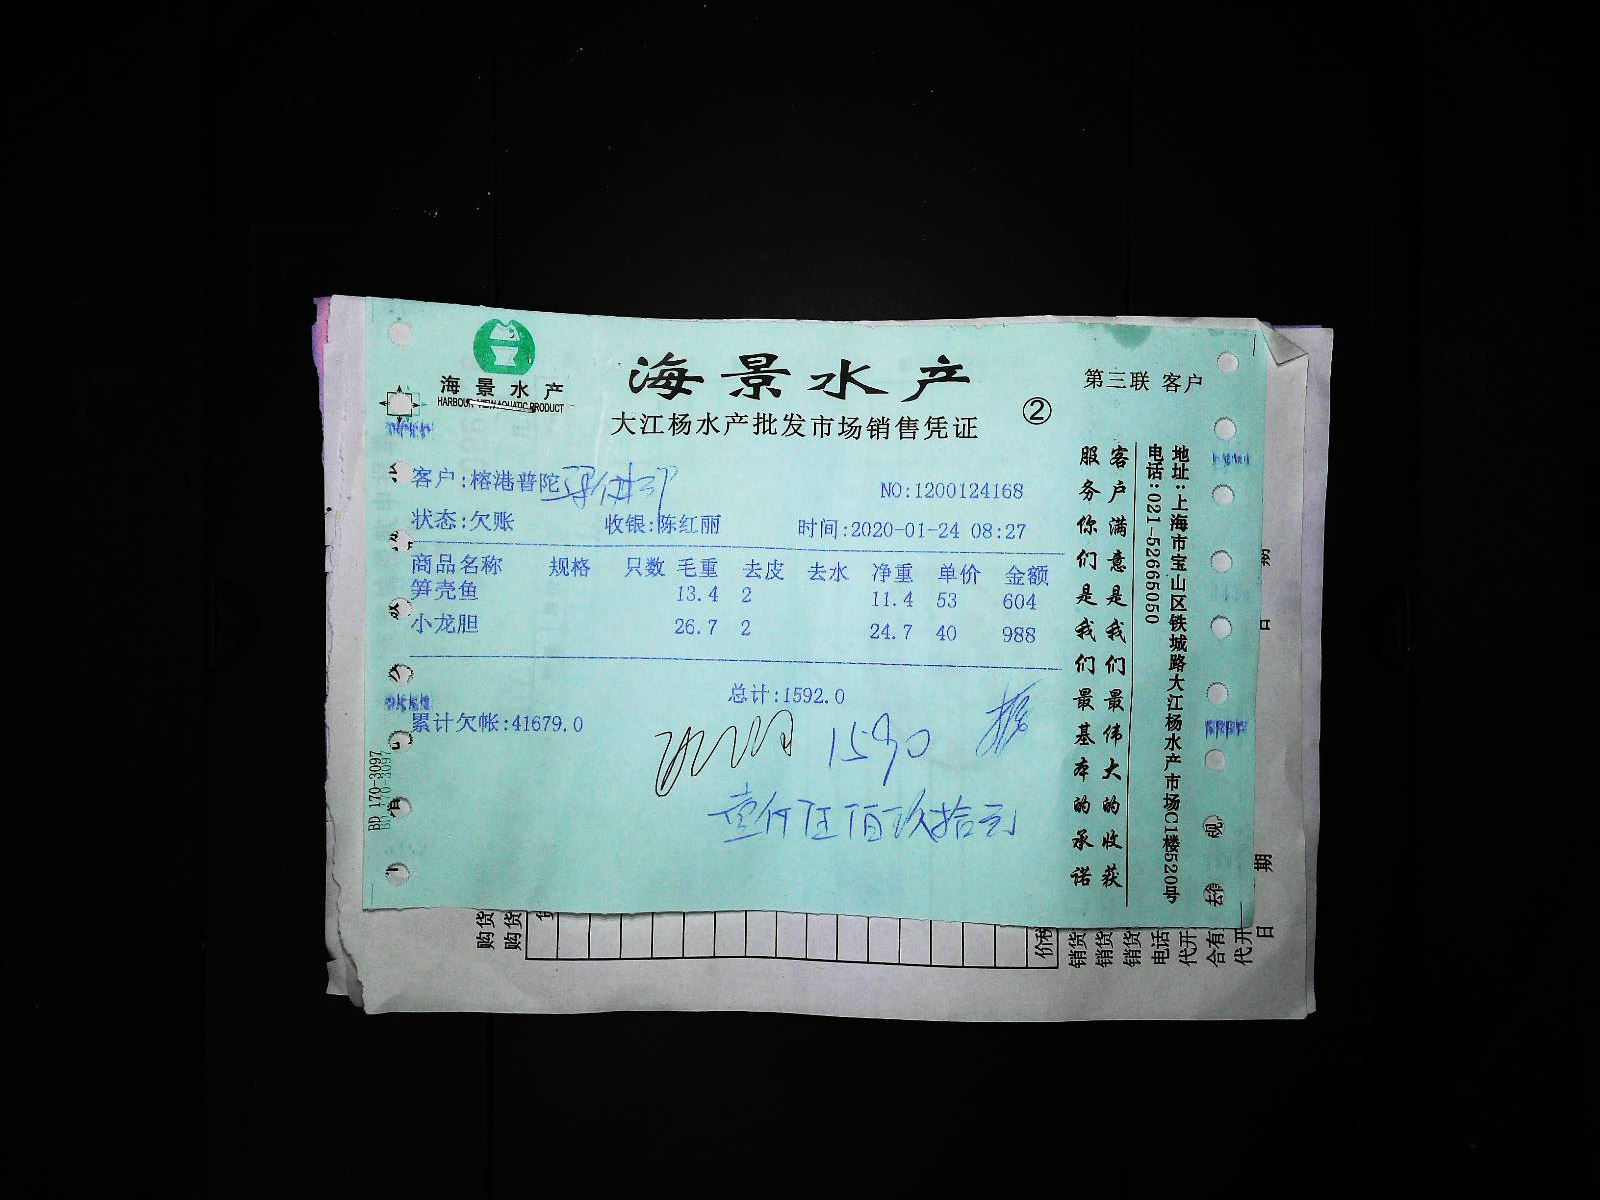 海景水产
HARBOUR VIEW AQUATIC PRODUCT
海景水产
大江杨水产批发市场销售凭证
②
第三联 客户
客户:榕港普陀
NO:1200124168
状态:欠账 收银:陈红丽 时间:2020-01-24 08:27
商品名称 规格 只数 毛重 去皮 去水 净重 单价 金额
笋壳鱼 13.4 2 11.4 53 604
小龙胆 26.7 2 24.7 40 988
总计:1592.0
累计欠帐:41679.0
1590
壹仟伍佰玖拾元
客户满意是我们最伟大的收获
服务你们是我们最基本的承诺
地址:上海市宝山区铁城路大江杨水产市场C1楼520号
电话:021-52665050
BD 170-3097
购货
购货
价税
销货
销货
销货
电话
代开
合有
代开
日
期